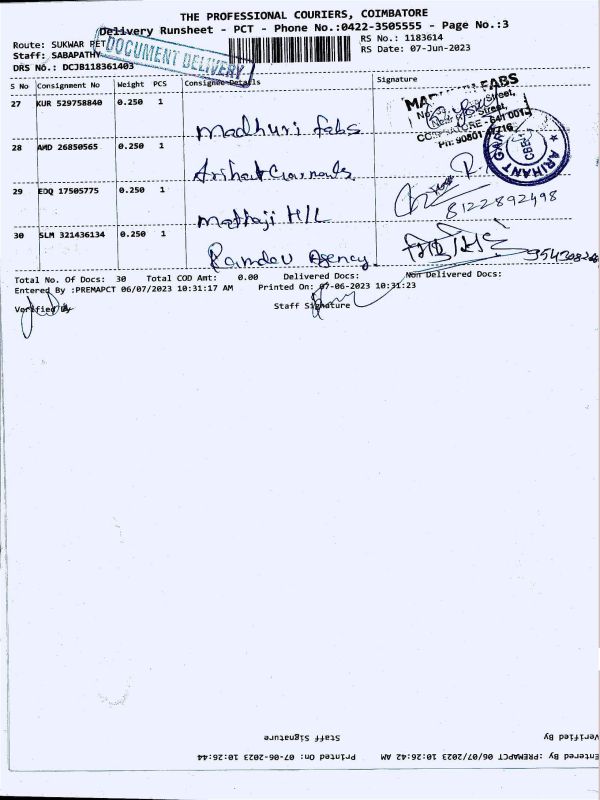 THE PROFESSIONAL COURIERS, COIMBATORE
Delivery Runsheet - PCT - Phone No.:0422-3505555 - Page No.:3
Route: SUKWAR PET
RS No.: 1183614
Staff: SABAPATHY
RS Date: 07-Jun-2023
DRS No.: DCJB118361403
DOCUMENT DELIVERY
S No Consignment No Weight PCS Consignee Details Signature
27 KUR 529758840 0.250 1
Madhuri fabs
28 AMD 26850565 0.250 1
Arihant Garments
29 EDQ 17505775 0.250 1
Mathaji H/L
30 SLM 321436134 0.250 1
Ramdev Agency
FABS
Street,
Street,
COIMBATORE - 641 001
Ph: 90801
ARIHANT
CBE-1
8122892498
Total No. Of Docs: 30 Total COD Amt: 0.00 Delivered Docs: Non Delivered Docs:
Entered By :PREMAPCT 06/07/2023 10:31:17 AM Printed On: 07-06-2023 10:31:23
Verified By Staff Signature
Verified By Staff Signature
Entered By :PREMAPCT 06/07/2023 10:26:42 AM Printed On: 07-06-2023 10:26:44